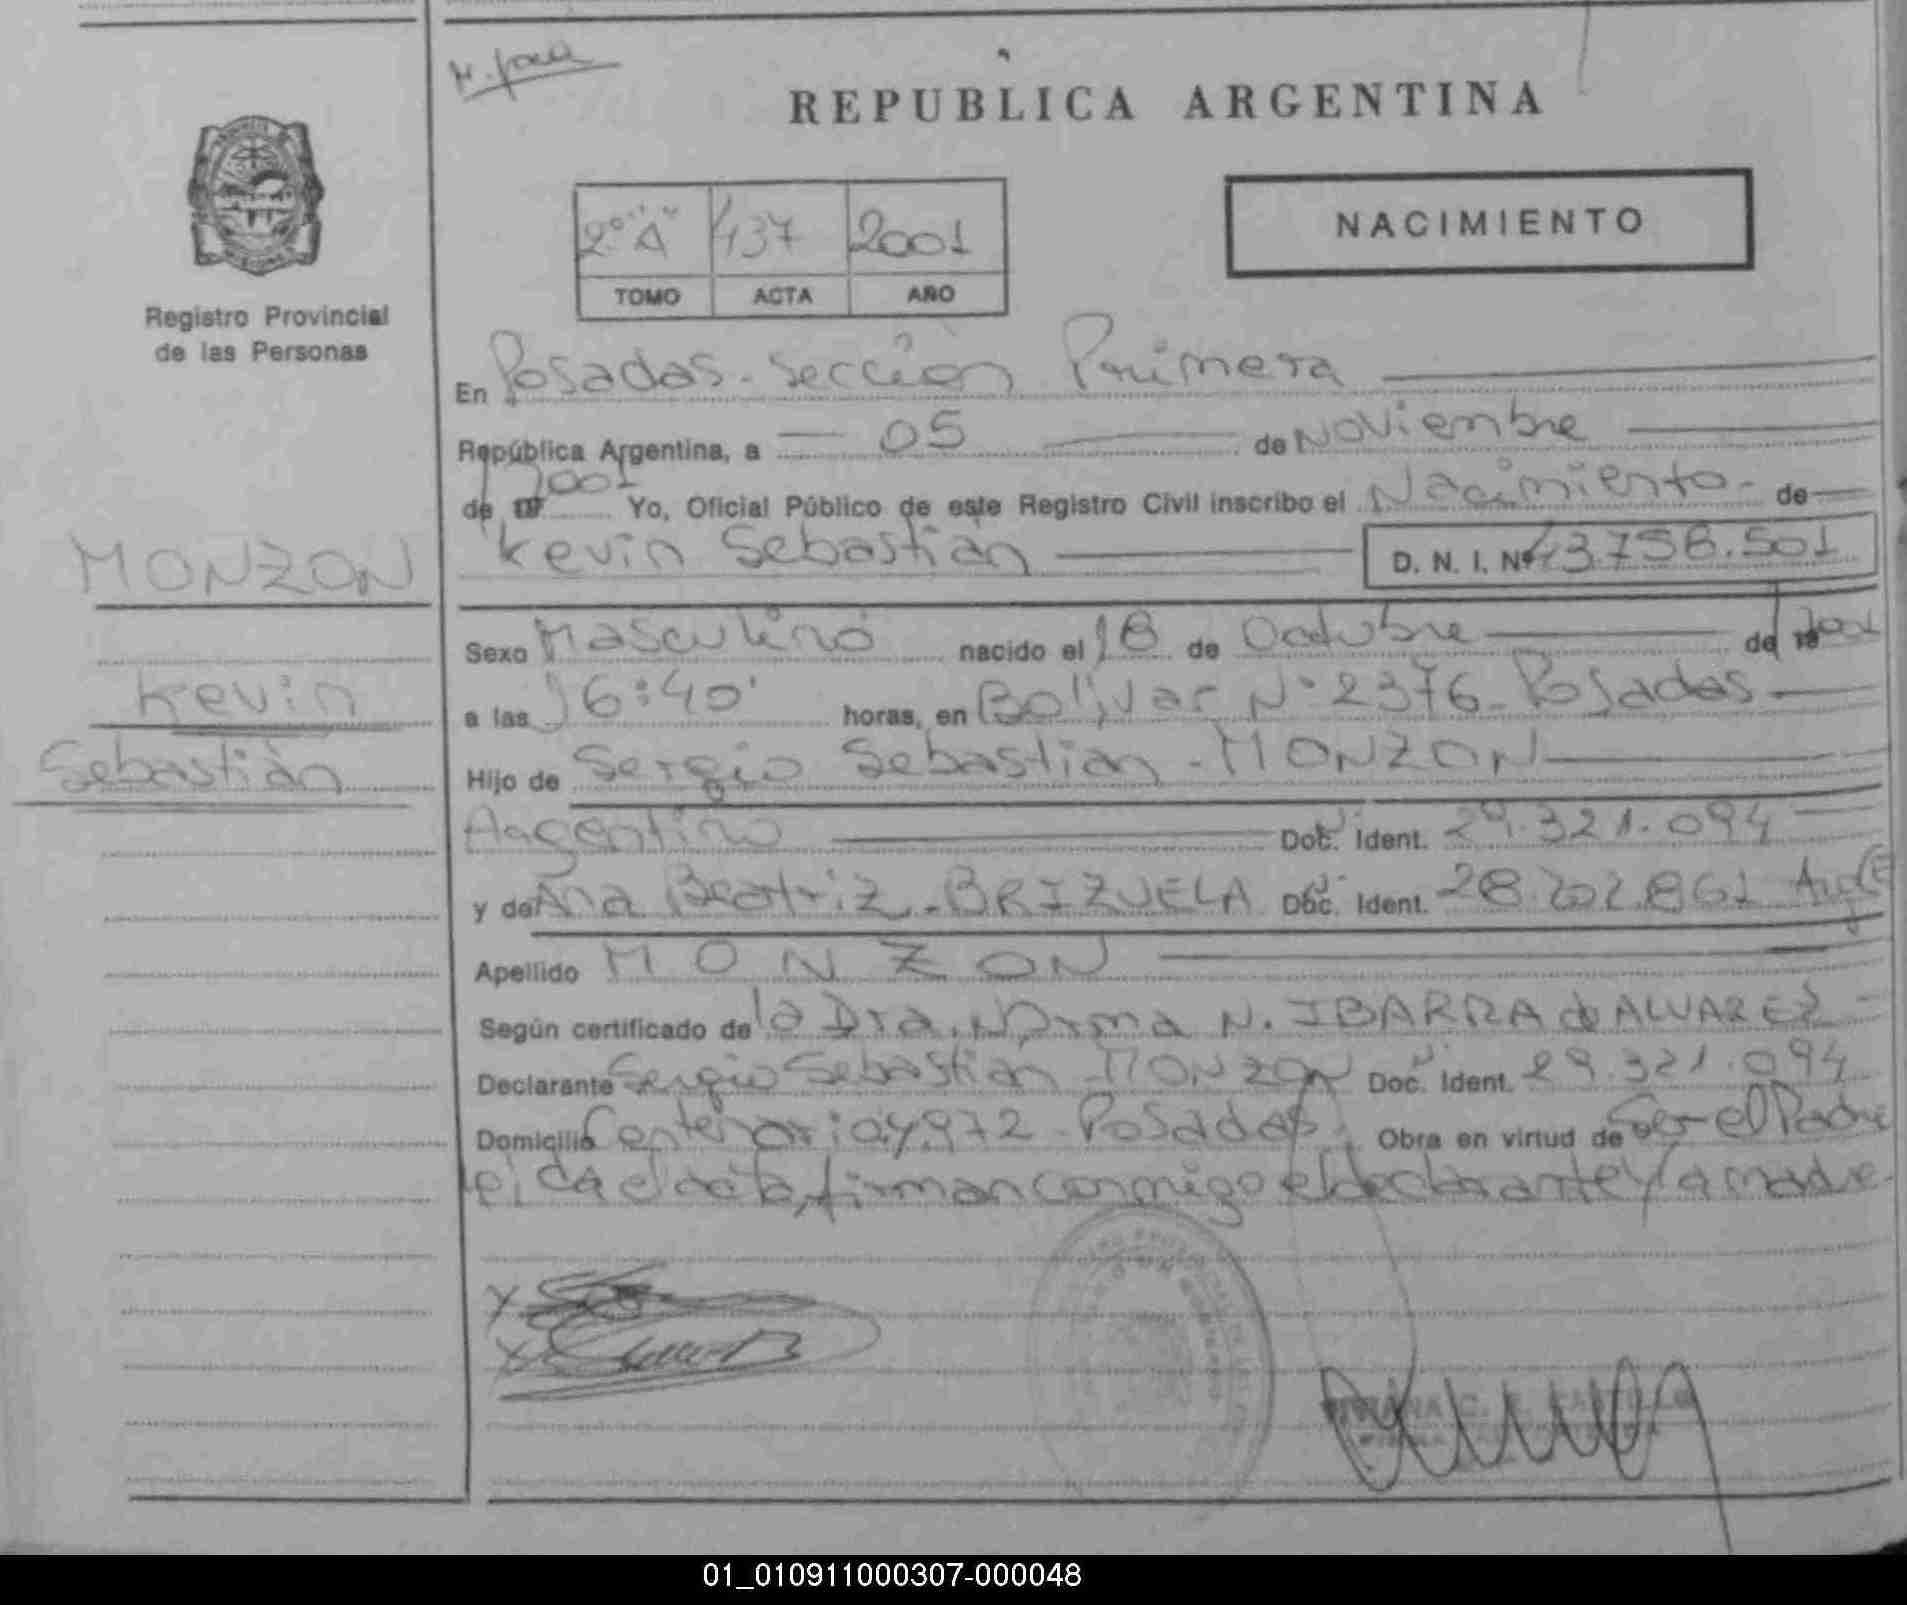 REPUBLICA ARGENTINA
NACIMIENTO
2° "A" 437 2001
TOMO ACTA AÑO
Registro Provincial
de las Personas
En Posadas - Sección Primera
República Argentina, a 05 de Noviembre
de 19 2001 Yo, Oficial Público de este Registro Civil inscribo el Nacimiento - de
Kevin Sebastián D. N. I. Nº 43.758.501
MONZON
Kevin
Sebastián
Sexo Masculino nacido el 18 de Octubre de 19 2001
a las 16:40' horas, en Bolívar N° 2376 - Posadas
Hijo de Sergio Sebastian - MONZON
Argentino Doc. Ident. 29.321.094
y de Ana Beatriz - BRIZUELA Doc. Ident. 28.202.861
Apellido MONZON
Según certificado de la Dra. Norma N. IBARRA de ALVAREZ
Declarante Sergio Sebastián MONZON Doc. Ident. 29.321.094
Domicilio Posadas Obra en virtud de Ser el Padre
firman conmigo el declarante y la madre
01_010911000307-000048